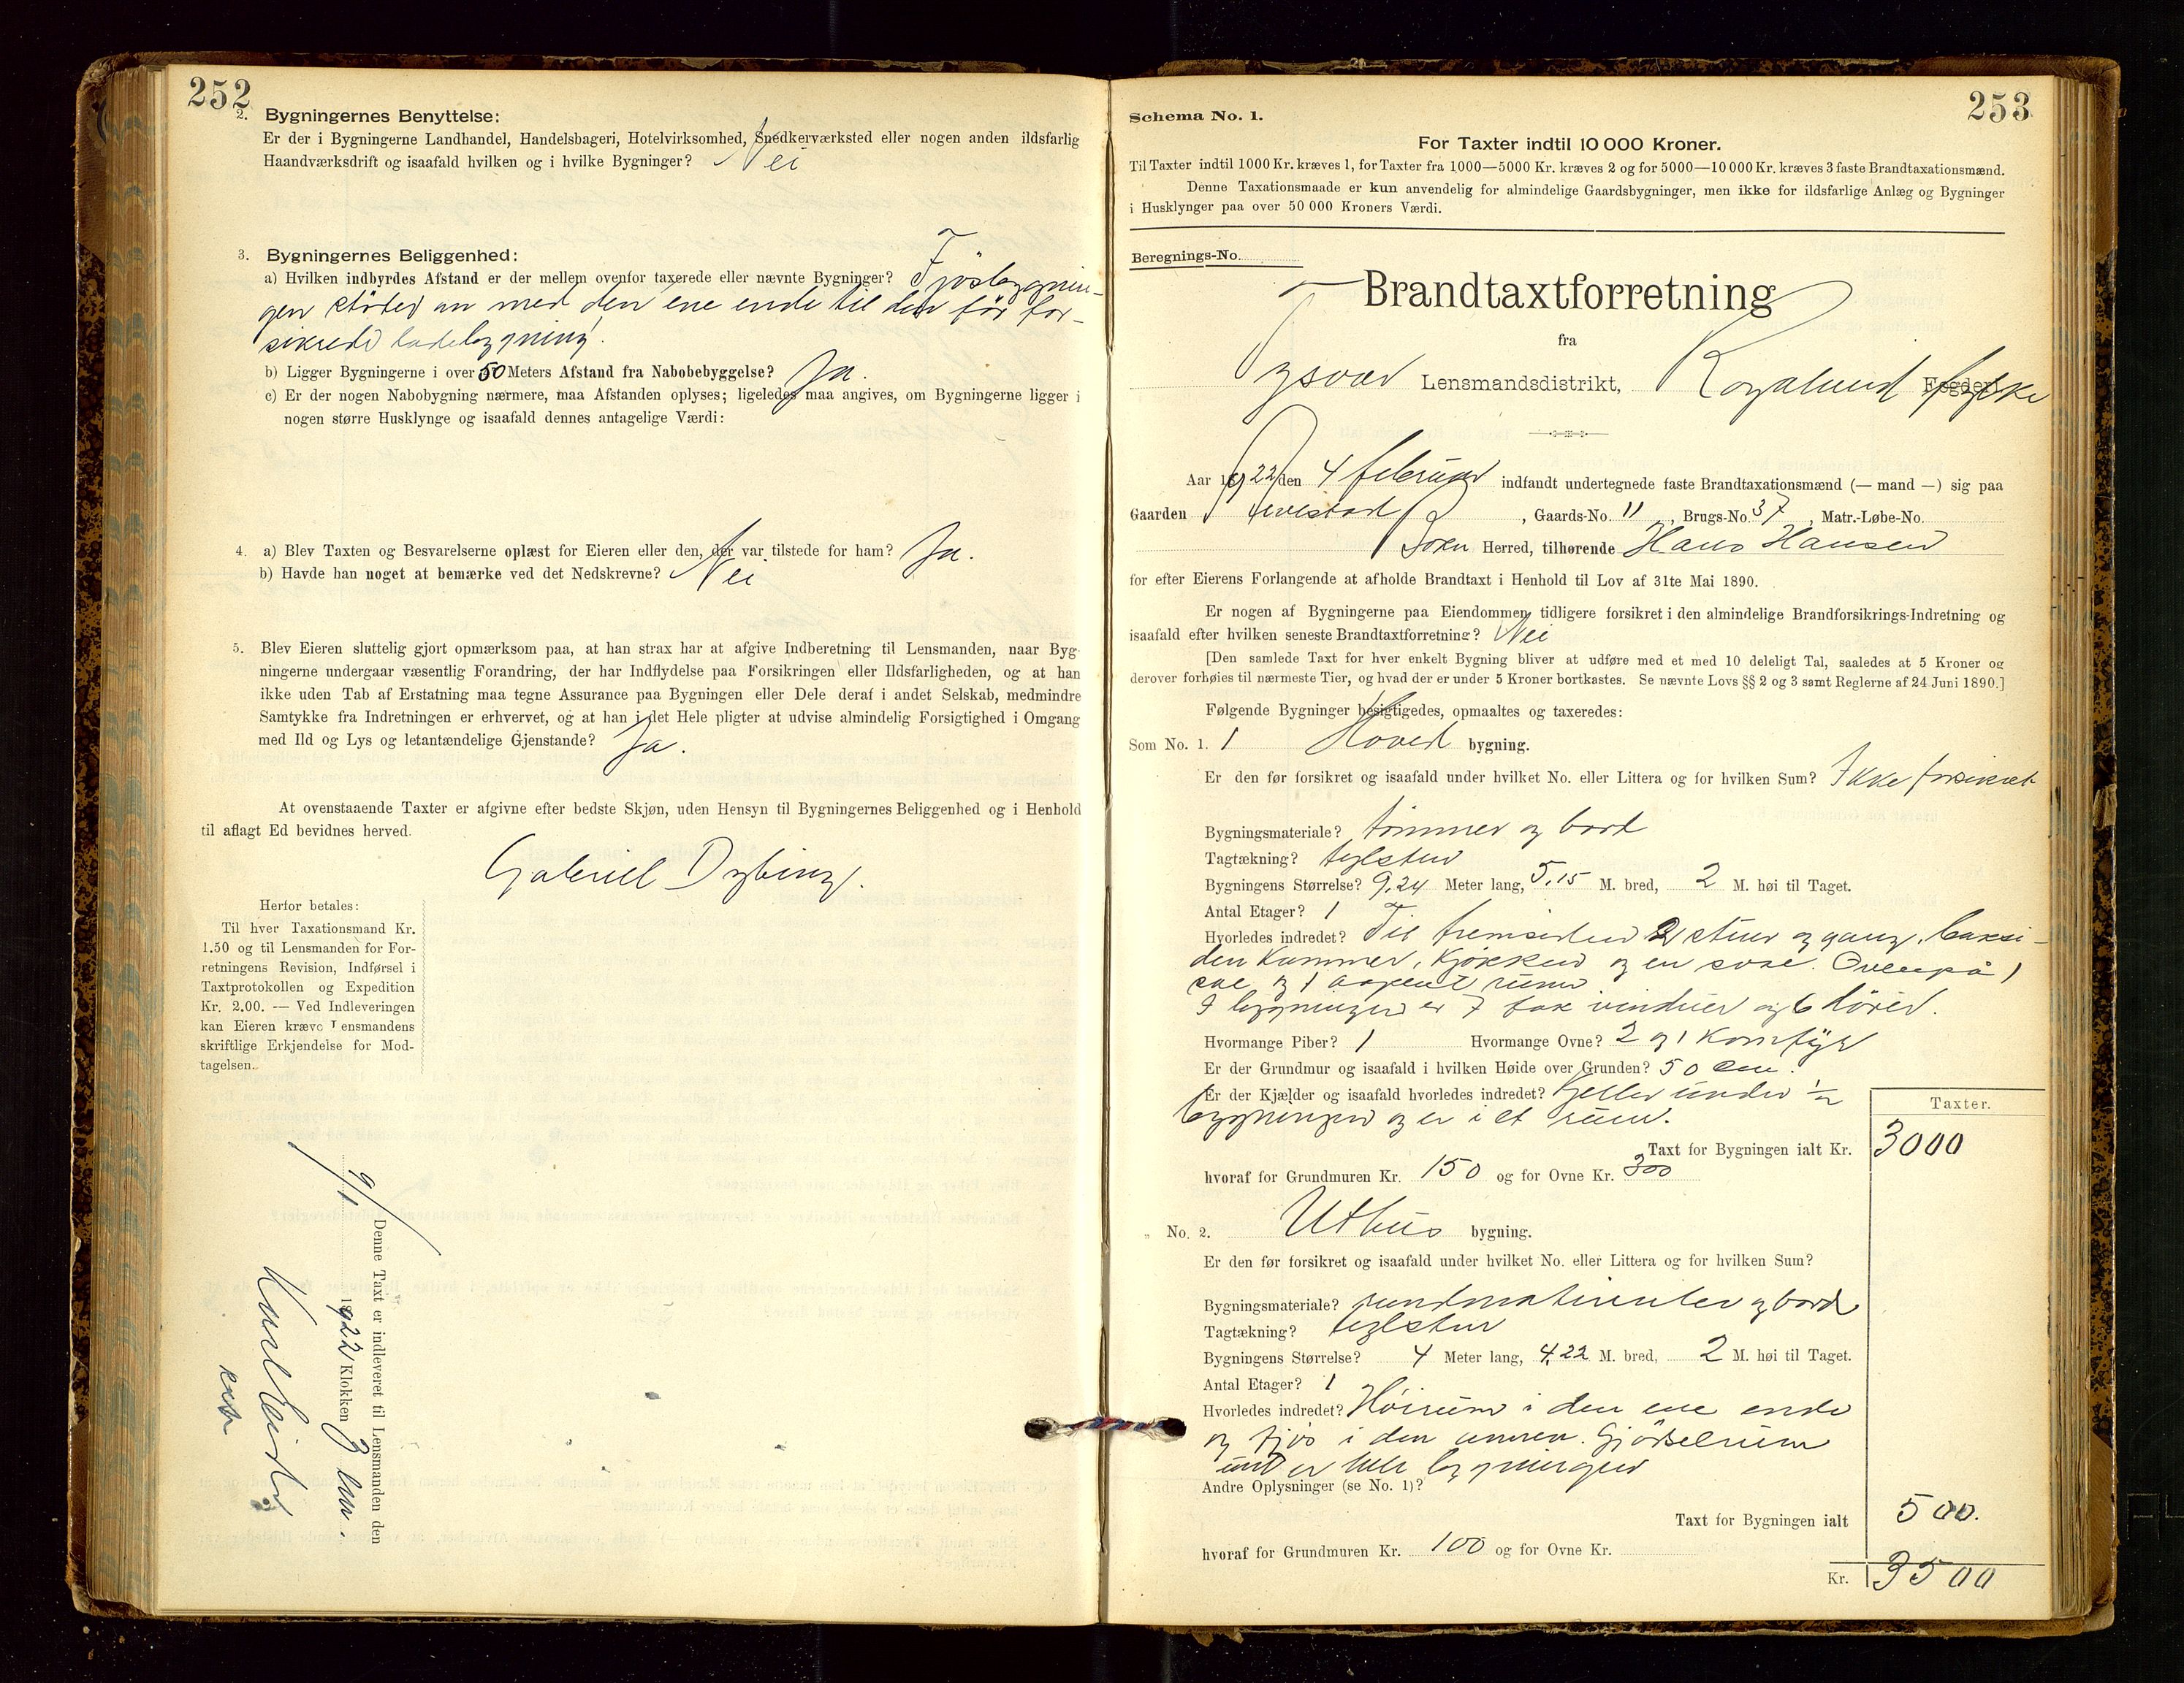 252
2. Bygningernes Benyttelse:
Er der i Bygningerne Landhandel, Handelsbageri, Hotelvirksomhed, Snedkerværksted eller nogen anden ildsfarlig
Haandværksdrift og isaafald hvilken og i hvilke Bygninger? Nei
3. Bygningernes Beliggenhed:
a) Hvilken indbyrdes Afstand er der mellem ovenfor taxerede eller nævnte Bygninger? Fjösbygnin-
gen støter an med den ene ende til den før for-
sikrede ladebygning.
b) Ligger Bygningerne i over 50 Meters Afstand fra Nabobebyggelse? Ja.
c) Er der nogen Nabobygning nærmere, maa Afstanden oplyses; ligeledes maa angives, om Bygningerne ligger i
nogen større Husklynge og isaafald dennes antagelige Værdi:
4. a) Blev Taxten og Besvarelserne oplæst for Eieren eller den, der var tilstede for ham? Ja.
b) Havde han noget at bemærke ved det Nedskrevne? Nei
5. Blev Eieren sluttelig gjort opmærksom paa, at han strax har at afgive Indberetning til Lensmanden, naar Byg-
ningerne undergaar væsentlig Forandring, der har Indflydelse paa Forsikringen eller Ildsfarligheden, og at han
ikke uden Tab af Erstatning maa tegne Assurance paa Bygningen eller Dele deraf i andet Selskab, medmindre
Samtykke fra Indretningen er erhvervet, og at han i det Hele pligter at udvise almindelig Forsigtighed i Omgang
med Ild og Lys og letantændelige Gjenstande? Ja.
At ovenstaaende Taxter er afgivne efter bedste Skjøn, uden Hensyn til Bygningernes Beliggenhed og i Henhold
til aflagt Ed bevidnes herved.
Gabriel Dybing.
Herfor betales:
Til hver Taxationsmand Kr.
1.50 og til Lensmanden for For-
retningens Revision, Indførsel i
Taxtprotokollen og Expedition
Kr. 2.00. — Ved Indleveringen
kan Eieren kræve Lensmandens
skriftlige Erkjendelse for Mod-
tagelsen.
Denne Taxt er indleveret til Lensmanden den
9/1 1922 Klokken 3 em.
253
Schema No. 1.
For Taxter indtil 10 000 Kroner.
Til Taxter indtil 1000 Kr. kræves 1, for Taxter fra 1000—5000 Kr. kræves 2 og for 5000—10 000 Kr. kræves 3 faste Brandtaxationsmænd.
Denne Taxationsmaade er kun anvendelig for almindelige Gaardsbygninger, men ikke for ildsfarlige Anlæg og Bygninger
i Husklynger paa over 50 000 Kroners Værdi.
Beregnings-No.
Brandtaxtforretning
fra
Tysvær Lensmandsdistrikt, Rogaland Fogderi fylke
Aar 1922 den 4 februar indfandt undertegnede faste Brandtaxationsmænd (— mand —) sig paa
Gaarden , Gaards-No. 11, Brugs-No. 37, Matr.-Løbe-No.
Herred, tilhørende Hans Hansen
for efter Eierens Forlangende at afholde Brandtaxt i Henhold til Lov af 31te Mai 1890.
Er nogen af Bygningerne paa Eiendommen tidligere forsikret i den almindelige Brandforsikrings-Indretning og
isaafald efter hvilken seneste Brandtaxtforretning? Nei
[Den samlede Taxt for hver enkelt Bygning bliver at udføre med et med 10 deleligt Tal, saaledes at 5 Kroner og
derover forhøies til nærmeste Tier, og hvad der er under 5 Kroner bortkastes. Se nævnte Lovs §§ 2 og 3 samt Reglerne af 24 Juni 1890.]
Følgende Bygninger besigtigedes, opmaaltes og taxeredes:
Som No. 1. 1 Hoved bygning.
Er den før forsikret og isaafald under hvilket No. eller Littera og for hvilken Sum? Ikke forsikret
Bygningsmateriale? tømmer og bord
Tagtækning? teglsten
Bygningens Størrelse? 9,24 Meter lang, 5,15 M. bred, 2 M. høi til Taget.
Antal Etager? 1
Hvorledes indredet? Til fremsiden 2 stuer og gang, baksi-
den kammer, kjøkken og en sval. Ovenpå 1
sal og 1 aapent rum
I bygningen er 7 fak vinduer og 6 dører.
Hvormange Piber? 1 Hvormange Ovne? 2 og 1 komfyr
Er der Grundmur og isaafald i hvilken Høide over Grunden? 50 cm.
Er der Kjælder og isaafald hvorledes indredet? Kjeller under 1/2
bygningen og er i et rum.
Taxter.
Taxt for Bygningen ialt Kr. 3000
hvoraf for Grundmuren Kr. 150 og for Ovne Kr. 300
„ No. 2. Uthus bygning.
Er den før forsikret og isaafald under hvilket No. eller Littera og for hvilken Sum?
Bygningsmateriale? rundmaterialer og bord
Tagtækning? teglsten
Bygningens Størrelse? 4 Meter lang, 4,22 M. bred, 2 M. høi til Taget.
Antal Etager? 1
Hvorledes indredet? Høirum i den ene ende
og fjøs i den annen. Gjødselrum
under hele bygningen
Andre Oplysninger (se No. 1)?
Taxt for Bygningen ialt 500.
hvoraf for Grundmuren Kr. 100 og for Ovne Kr.
Kr. 3500